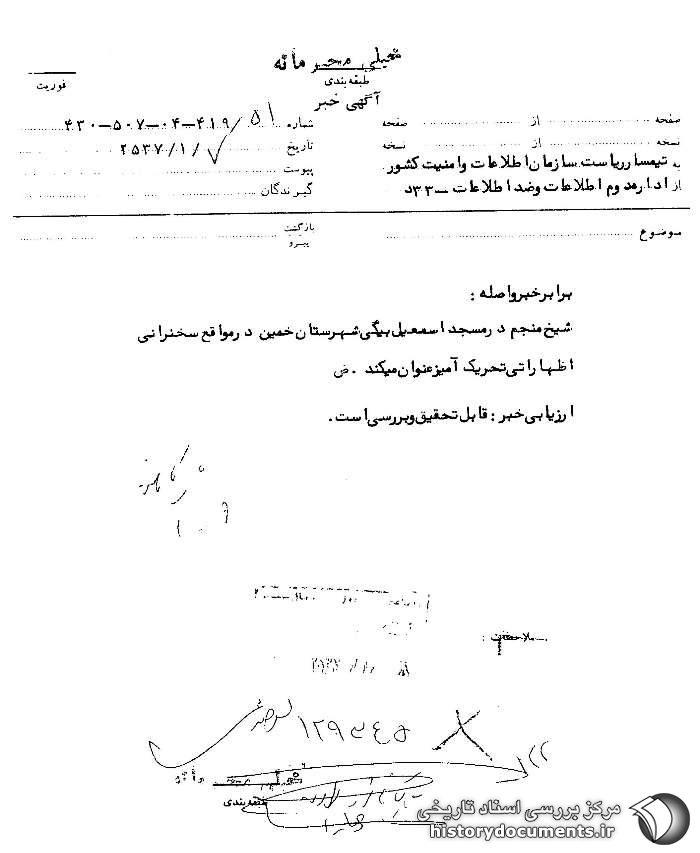 خیلی محرمانه
طبقه‌بندی
آگهی خبر
فوریت
شماره ۴۳۰-۵۰۷-۰۴-۴۱۹/۵۱
صفحه از صفحه
نسخه از نسخه
تاریخ ۲۵۳۷/۱/
به تیمسار ریاست سازمان اطلاعات و امنیت کشور
پیوست
از اداره دوم اطلاعات و ضد اطلاعات - ۳۳د
گیرندگان
موضوع
بازگشت
پیرو
برابر خبر واصله :
شیخ منجم در مسجد اسمعیل بیگی شهرستان خمین در مواقع سخنرانی
اظهاراتی تحریک آمیز عنوان میکند . ض
ارزیابی خبر : قابل تحقیق و بررسی است .
ملاحظات :
طبقه‌بندی
مرکز بررسی اسناد تاریخی
historydocuments.ir